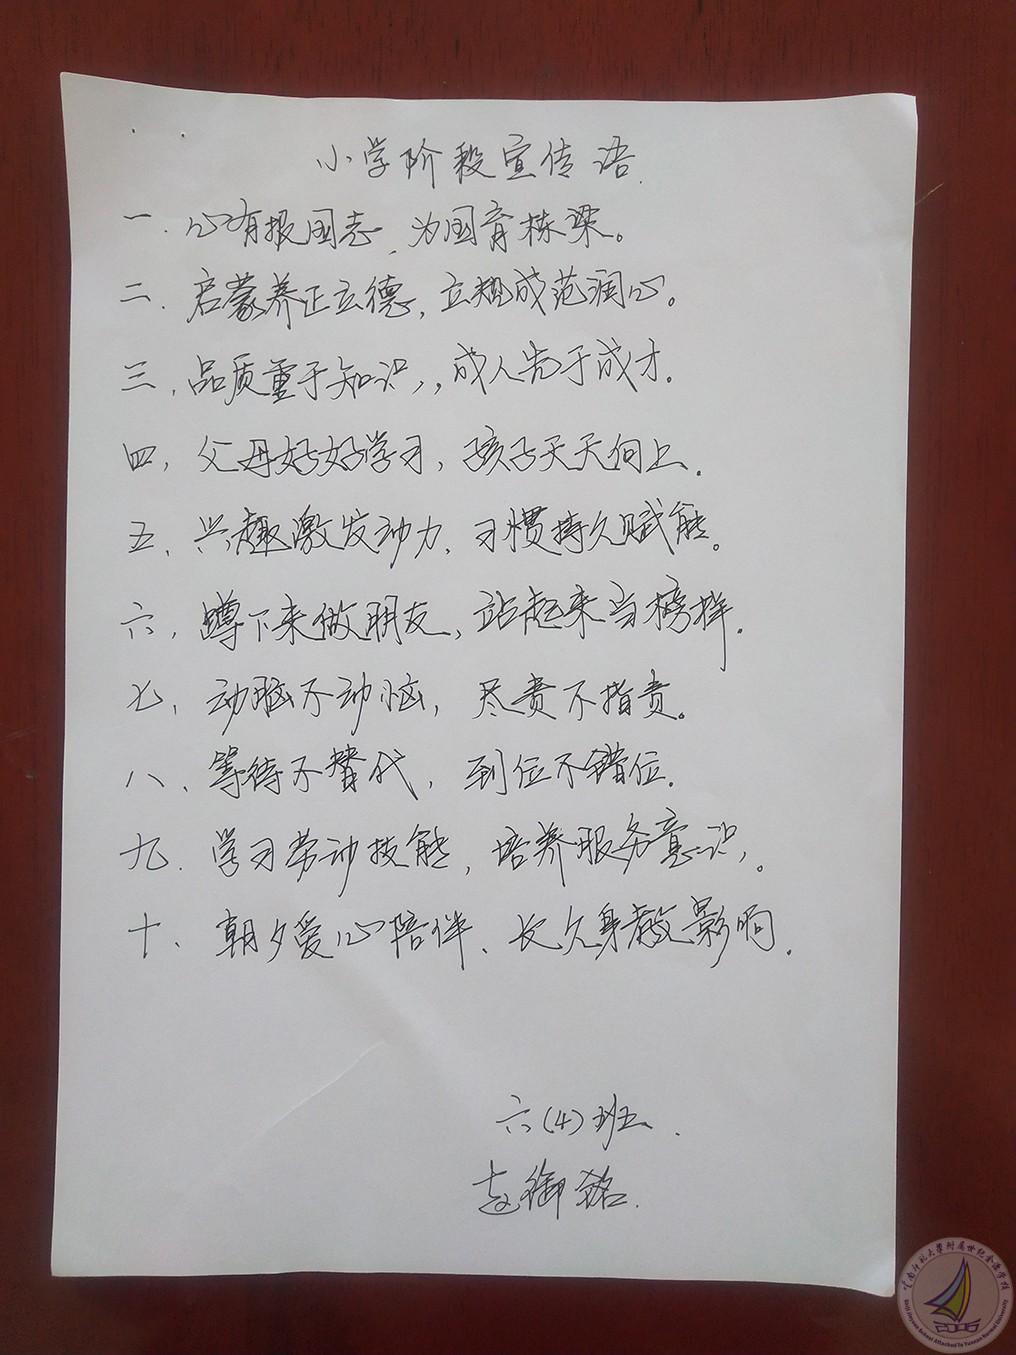 小学阶段宣传语.
一、心有报国志、为国育栋梁。
二、启蒙养正立德，立规成范润心。
三，品质重于知识，，成人先于成才.
四，父母好好学习，孩子天天向上.
五，兴趣激发动力、习惯持久赋能。
六，蹲下来做朋友，站起来当榜样.
七，动脑不动恼，尽责不指责。
八、等待不替代，到位不错位.
九、学习劳动技能，培养服务意识，。
十、朝夕爱心陪伴、长久身教影响.
六(4)班.
赵御铭.
云南师范大學附属世纪金源学校
Shiji Jinyuan School Attached To Yunnan Normal University